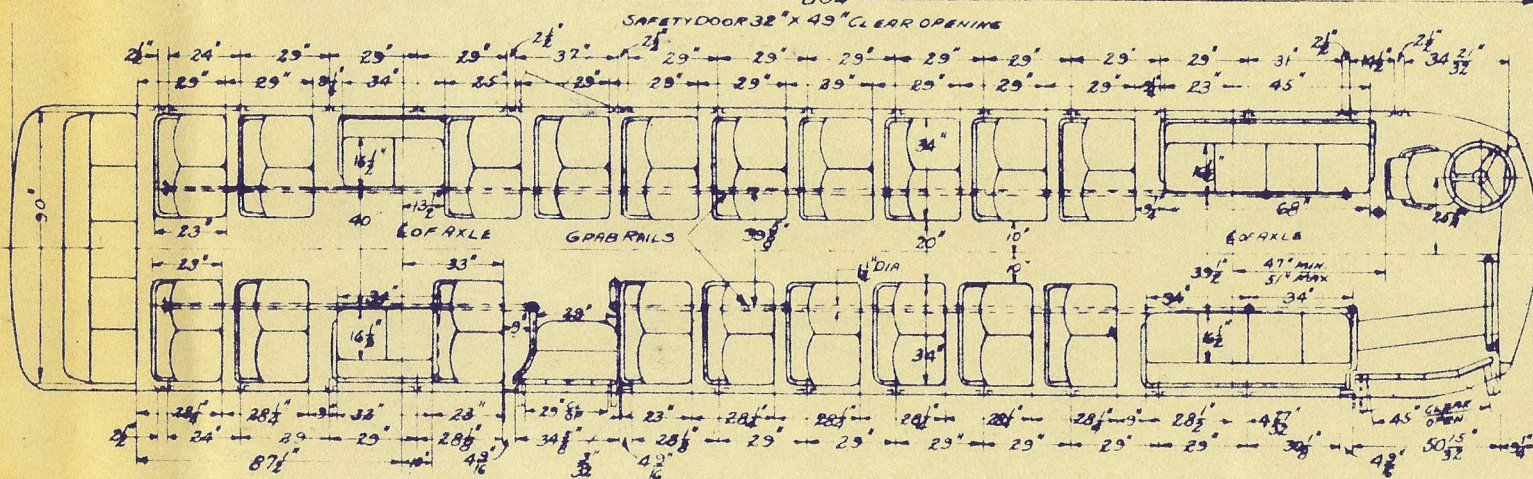 SAFETY DOOR 32" X 49" CLEAR OPENING
2½" 24" 29" 29" 29" 2½" 37" 2½" 29" 29" 29" 29" 29" 29" 29" 31" 2½" 2½" 34 21/32"
29" 29" 34" 25" 29" 29" 29" 29" 29" 29" 29" 23" 45"
16½" 34"
90"
13½" 68"
23" 40" ℄ OF AXLE GRAB RAILS 39⅝" 20" 10" ℄ OF AXLE
29" 33" 1¼" DIA 10" 39½" 47" MIN
51" MAX
34" 29" 34" 34"
9"
16½" 34" 16½"
28¼" 28¼" 9" 32" 23" 29" 23" 28¼" 28¼" 28¼" 28¼" 28¼" 9" 28½" 45" CLEAR OPEN
2½" 24" 29" 29" 28⅛" 34⅞" 28⅛" 29" 29" 29" 29" 29" 29" 30⅛" 50 15/32"
87½" 10" 4 9/16" 4 9/16" 4 9/16"